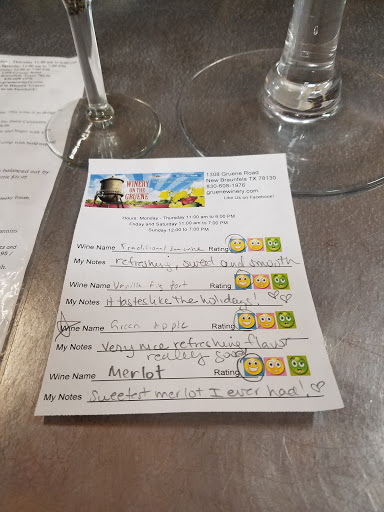 WINERY
ON THE
GRUENE
1308 Gruene Road
New Braunfels TX 78130
830-608-1976
gruenewinery.com
Like Us on Facebook!
Hours: Monday - Thursday 11:00 am to 6:00 PM
Friday and Saturday 11:00 am to 7:00 PM
Sunday 12:00 to 7:00 PM
Wine Name Traditional Rating
My Notes refreshing, sweet and smooth
Wine Name Vanilla fig Port Rating
My Notes It tastes like the holidays!
Wine Name Green apple Rating
My Notes Very nice refreshing flavor
really good
Wine Name Merlot Rating
My Notes Sweetest merlot I ever had!